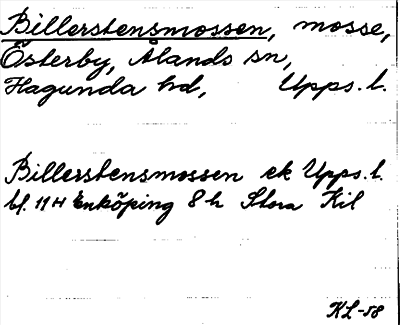 Billerstensmossen, mosse,
Österby, Ålands sn,
Hagunda hd, Upps. l.
Billerstensmossen ek Upps. l.
bl. 11H Enköping 8 h Stora Kil
KL-58